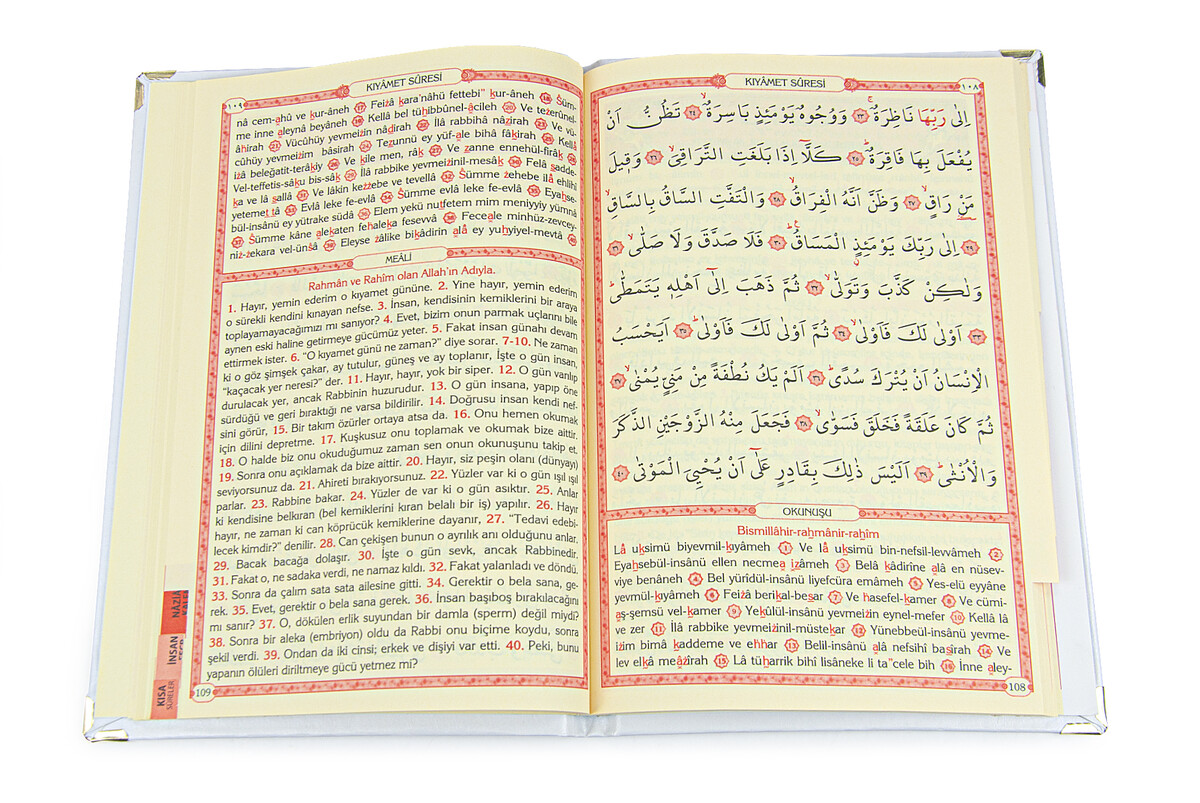 KIYÂMET SÛRESİ
١٠٨
اِلٰى رَبِّهَا نَاظِرَةٌۚ ﴿٢٣﴾ وَوُجُوهٌ يَوْمَئِذٍ بَاسِرَةٌۙ ﴿٢٤﴾ تَظُنُّ اَنْ
يُفْعَلَ بِهَا فَاقِرَةٌۜ ﴿٢٥﴾ كَلَّٓا اِذَا بَلَغَتِ التَّرَاقِيَۙ ﴿٢٦﴾ وَق۪يلَ
مَنْ رَاقٍۙ ﴿٢٧﴾ وَظَنَّ اَنَّهُ الْفِرَاقُۙ ﴿٢٨﴾ وَالْتَفَّتِ السَّاقُ بِالسَّاقِۙ
﴿٢٩﴾ اِلٰى رَبِّكَ يَوْمَئِذٍ الْمَسَاقُۜ ﴿٣٠﴾ فَلَا صَدَّقَ وَلَا صَلّٰىۙ ﴿٣١﴾
وَلٰكِنْ كَذَّبَ وَتَوَلّٰىۙ ﴿٣٢﴾ ثُمَّ ذَهَبَ اِلٰٓى اَهْلِه۪ يَتَمَطّٰىۜ
﴿٣٣﴾ اَوْلٰى لَكَ فَاَوْلٰىۙ ﴿٣٤﴾ ثُمَّ اَوْلٰى لَكَ فَاَوْلٰىۜ ﴿٣٥﴾ اَيَحْسَبُ
الْاِنْسَانُ اَنْ يُتْرَكَ سُدًىۜ ﴿٣٦﴾ اَلَمْ يَكُ نُطْفَةً مِنْ مَنِيٍّ يُمْنٰىۙ ﴿٣٧﴾
ثُمَّ كَانَ عَلَقَةً فَخَلَقَ فَسَوّٰىۙ ﴿٣٨﴾ فَجَعَلَ مِنْهُ الزَّوْجَيْنِ الذَّكَرَ
وَالْاُنْثٰىۜ ﴿٣٩﴾ اَلَيْسَ ذٰلِكَ بِقَادِرٍ عَلٰٓى اَنْ يُحْيِيَ الْمَوْتٰى ﴿٤٠﴾
OKUNUŞU
Bismillâhir-rahmânir-rahîm
Lâ uksimü biyevmil-kıyâmeh (1) Ve lâ uksimü bin-nefsil-levvâmeh (2)
Eyahsebül-insânü ellen necmea izâmeh (3) Belâ kâdirîne alâ en nüsev-
viye benâneh (4) Bel yürîdül-insânü liyefcüra emâmeh (5) Yes-elü eyyâne
yevmül-kıyâmeh (6) Feizâ berikal-besar (7) Ve hasefel-kamer (8) Ve cümi-
aş-şemsü vel-kamer (9) Yekûlül-insânü yevmeizin eynel-mefer (10) Kellâ lâ
ve zer (11) İlâ rabbike yevmeizinil-müstekar (12) Yünebbeül-insânü yevme-
izim bimâ kaddeme ve ehhar (13) Belil-insânü alâ nefsihî basîrah (14) Ve
lev elkâ meâzîrah (15) Lâ tüharrik bihî lisâneke li ta"cele bih (16) İnne aley-
108
KIYÂMET SÛRESİ
١٠٩
nâ cem-ahû ve kur-âneh (17) Feizâ kara'nâhü fettebi" kur-âneh (18) Süm-
me inne aleynâ beyâneh (19) Kellâ bel tühibbûnel-âcileh (20) Ve tezerûnel-
âhirah (21) Vücûhüy yevmeizin nâdirah (22) İlâ rabbihâ nâzirah (23) Ve vü-
cûhüy yevmeizim bâsirah (24) Tezunnü ey yüf-ale bihâ fâkirah (25) Kellâ
izâ beleğatit-terâkiy (26) Ve kîle men, râk (27) Ve zanne ennehül-firâk (28)
Vel-teffetis-sâku bis-sâk (29) İlâ rabbike yevmeizinil-mesâk (30) Felâ sadde-
ka ve lâ sallâ (31) Ve lâkin kezzebe ve tevellâ (32) Sümme zehebe ilâ ehlihî
yetemet tâ (33) Evlâ leke fe-evlâ (34) Sümme evlâ leke fe-evlâ (35) Eyahse-
bül-insânü ey yütrake südâ (36) Elem yekü nutfetem mim meniyyiy yümnâ
(37) Sümme kâne alekaten fehaleka fesevvâ (38) Feceale minhüz-zevcey-
niz-zekara vel-ünsâ (39) Eleyse zâlike bikâdirin alâ ey yuhyiyel-mevtâ (40)
MEÂLİ
Rahmân ve Rahîm olan Allah'ın Adıyla.
1. Hayır, yemin ederim o kıyamet gününe. 2. Yine hayır, yemin ederim
o sürekli kendini kınayan nefse. 3. İnsan, kendisinin kemiklerini bir araya
toplayamayacağımızı mı sanıyor? 4. Evet, bizim onun parmak uçlarını bile
aynen eski haline getirmeye gücümüz yeter. 5. Fakat insan günahı devam
ettirmek ister. 6. "O kıyamet günü ne zaman?" diye sorar. 7-10. Ne zaman
ki o göz şimşek çakar, ay tutulur, güneş ve ay toplanır, İşte o gün insan,
"kaçacak yer neresi?" der. 11. Hayır, hayır, yok bir siper. 12. O gün vanlıp
durulacak yer, ancak Rabbinin huzurudur. 13. O gün insana, yapıp öne
sürdüğü ve geri bıraktığı ne varsa bildirilir. 14. Doğrusu insan kendi nef-
sini görür, 15. Bir takım özürler ortaya atsa da. 16. Onu hemen okumak
için dilini depretme. 17. Kuşkusuz onu toplamak ve okumak bize aittir.
18. O halde biz onu okuduğumuz zaman sen onun okunuşunu takip et.
19. Sonra onu açıklamak da bize aittir. 20. Hayır, siz peşin olanı (dünyayı)
seviyorsunuz da. 21. Ahireti bırakıyorsunuz. 22. Yüzler var ki o gün ışıl ışıl
parlar. 23. Rabbine bakar. 24. Yüzler de var ki o gün asıktır. 25. Anlar
ki kendisine belkıran (bel kemiklerini kıran belalı bir iş) yapılır. 26. Hayır
hayır, ne zaman ki can köprücük kemiklerine dayanır, 27. "Tedavi edebi-
lecek kimdir?" denilir. 28. Can çekişen bunun o ayrılık anı olduğunu anlar.
29. Bacak bacağa dolaşır. 30. İşte o gün sevk, ancak Rabbinedir.
31. Fakat o, ne sadaka verdi, ne namaz kıldı. 32. Fakat yalanladı ve döndü.
33. Sonra da çalım sata sata ailesine gitti. 34. Gerektir o bela sana, ge-
rek. 35. Evet, gerektir o bela sana gerek. 36. İnsan başıboş bırakılacağını
mı sanır? 37. O, dökülen erlik suyundan bir damla (sperm) değil miydi?
38. Sonra bir aleka (embriyon) oldu da Rabbi onu biçime koydu, sonra
şekil verdi. 39. Ondan da iki cinsi; erkek ve dişiyi var etti. 40. Peki, bunu
yapanın ölüleri diriltmeye gücü yetmez mi?
109
NÂZİA
İNSAN
KISA
SÛRELER